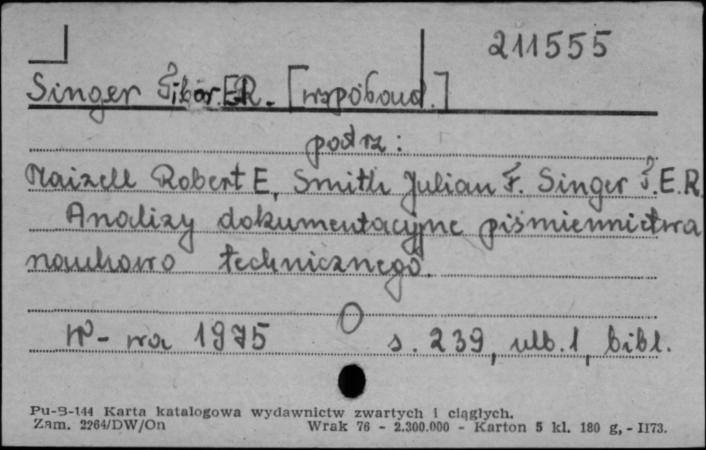 211555
Singer Tibor. E.R. [współaud.]
podrz:
Maizell Robert E, Smith Julian F. Singer T.E.R.
Analizy dokumentacyjne piśmiennictwa
naukowo technicznego.
W-wa 1975 s. 239, ulb. 1, bibl.
Pu-B-144 Karta katalogowa wydawnictw zwartych i ciągłych.
Zam. 2264/DW/On Wrak 76 - 2.300.000 - Karton 5 kl. 180 g, - II73.